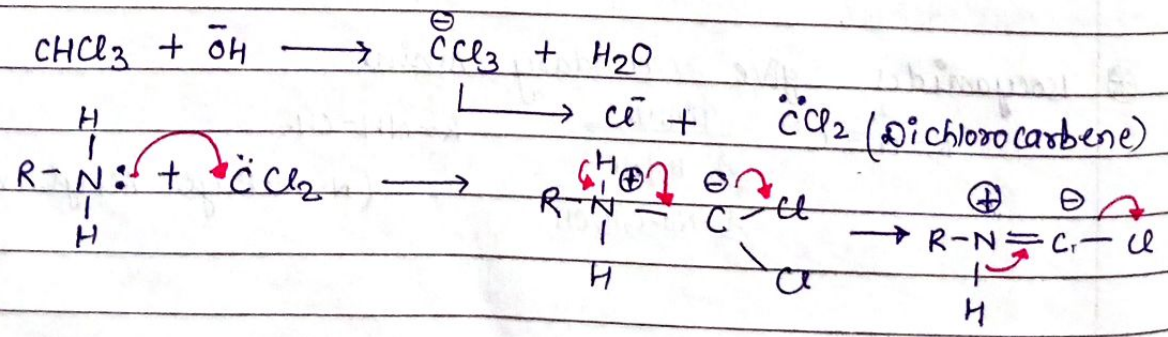 CHCl3 + ŌH ⟶ C̈Cl3⊖ + H2O
⟶ Cl⁻ + C̈Cl2 (Dichlorocarbene)
H
R-N: + C̈Cl2 ⟶
H
H
R-N⊕ — C⊖ Cl
H Cl
⟶ R-N⊕=C⊖-Cl
H